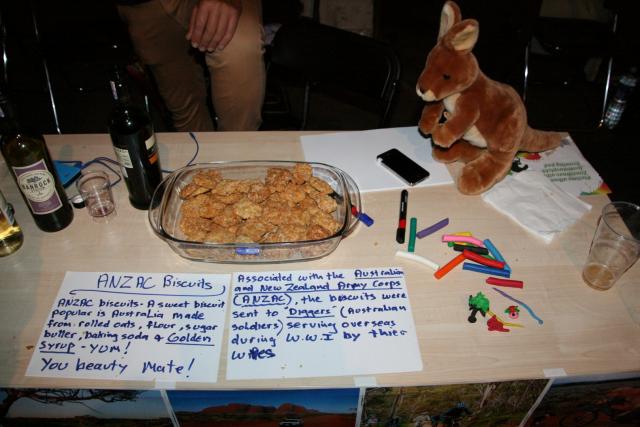 ANZAC Biscuits
ANZAC biscuits - A sweet biscuit
popular is Australia made
from rolled oats, flour, sugar
butter, baking soda & Golden
Syrup - YUM!
You beauty Mate!
Associated with the Australia
and New Zealand Army Corps
(ANZAC), the biscuits were
sent to "Diggers" (Australian
soldiers) serving overseas
during W.W.I by thier
wifes